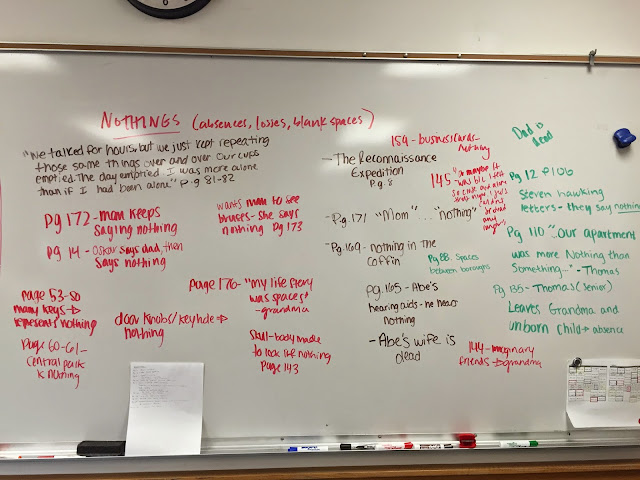 NOTHINGS (absences, losses, blank spaces)
"We talked for hours, but we just kept repeating
those same things over and over. Our cups
emptied. The day emptied. I was more alone
than if I had been alone." p.g 81-82
pg 172 - mom keeps
saying nothing
pg 14 - Oskar says dad, then
says nothing
wants mom to see
bruises - she says
nothing pg 173
page 53 - so
many keys →
represents nothing
Page 60-61 -
central park
is nothing
door knobs/keyhole →
nothing
page 176 - "my life story
was spaces"
- grandma
Skull - body made
to look like nothing
Page 143
159 - business cards -
nothing
- The Reconnaissance
Expedition
P.g. 8
145 "or maybe it
was b/c I felt
- Pg. 171 "Mom" ... "nothing"
- Pg. 169 - nothing in the
coffin
Pg 88. Spaces
between boroughs
pg. 165 - Abe's
hearing aids - he hears
nothing
- Abe's wife is
dead
144 - imaginary
friends → grandma
Dad is
dead
Pg 12 & 106
Steven hawking
letters - they say nothing
Pg 110 "..our apartment
was more Nothing than
Something..." - Thomas
Pg 135 - Thomas (senior)
Leaves Grandma and
unborn child → absence